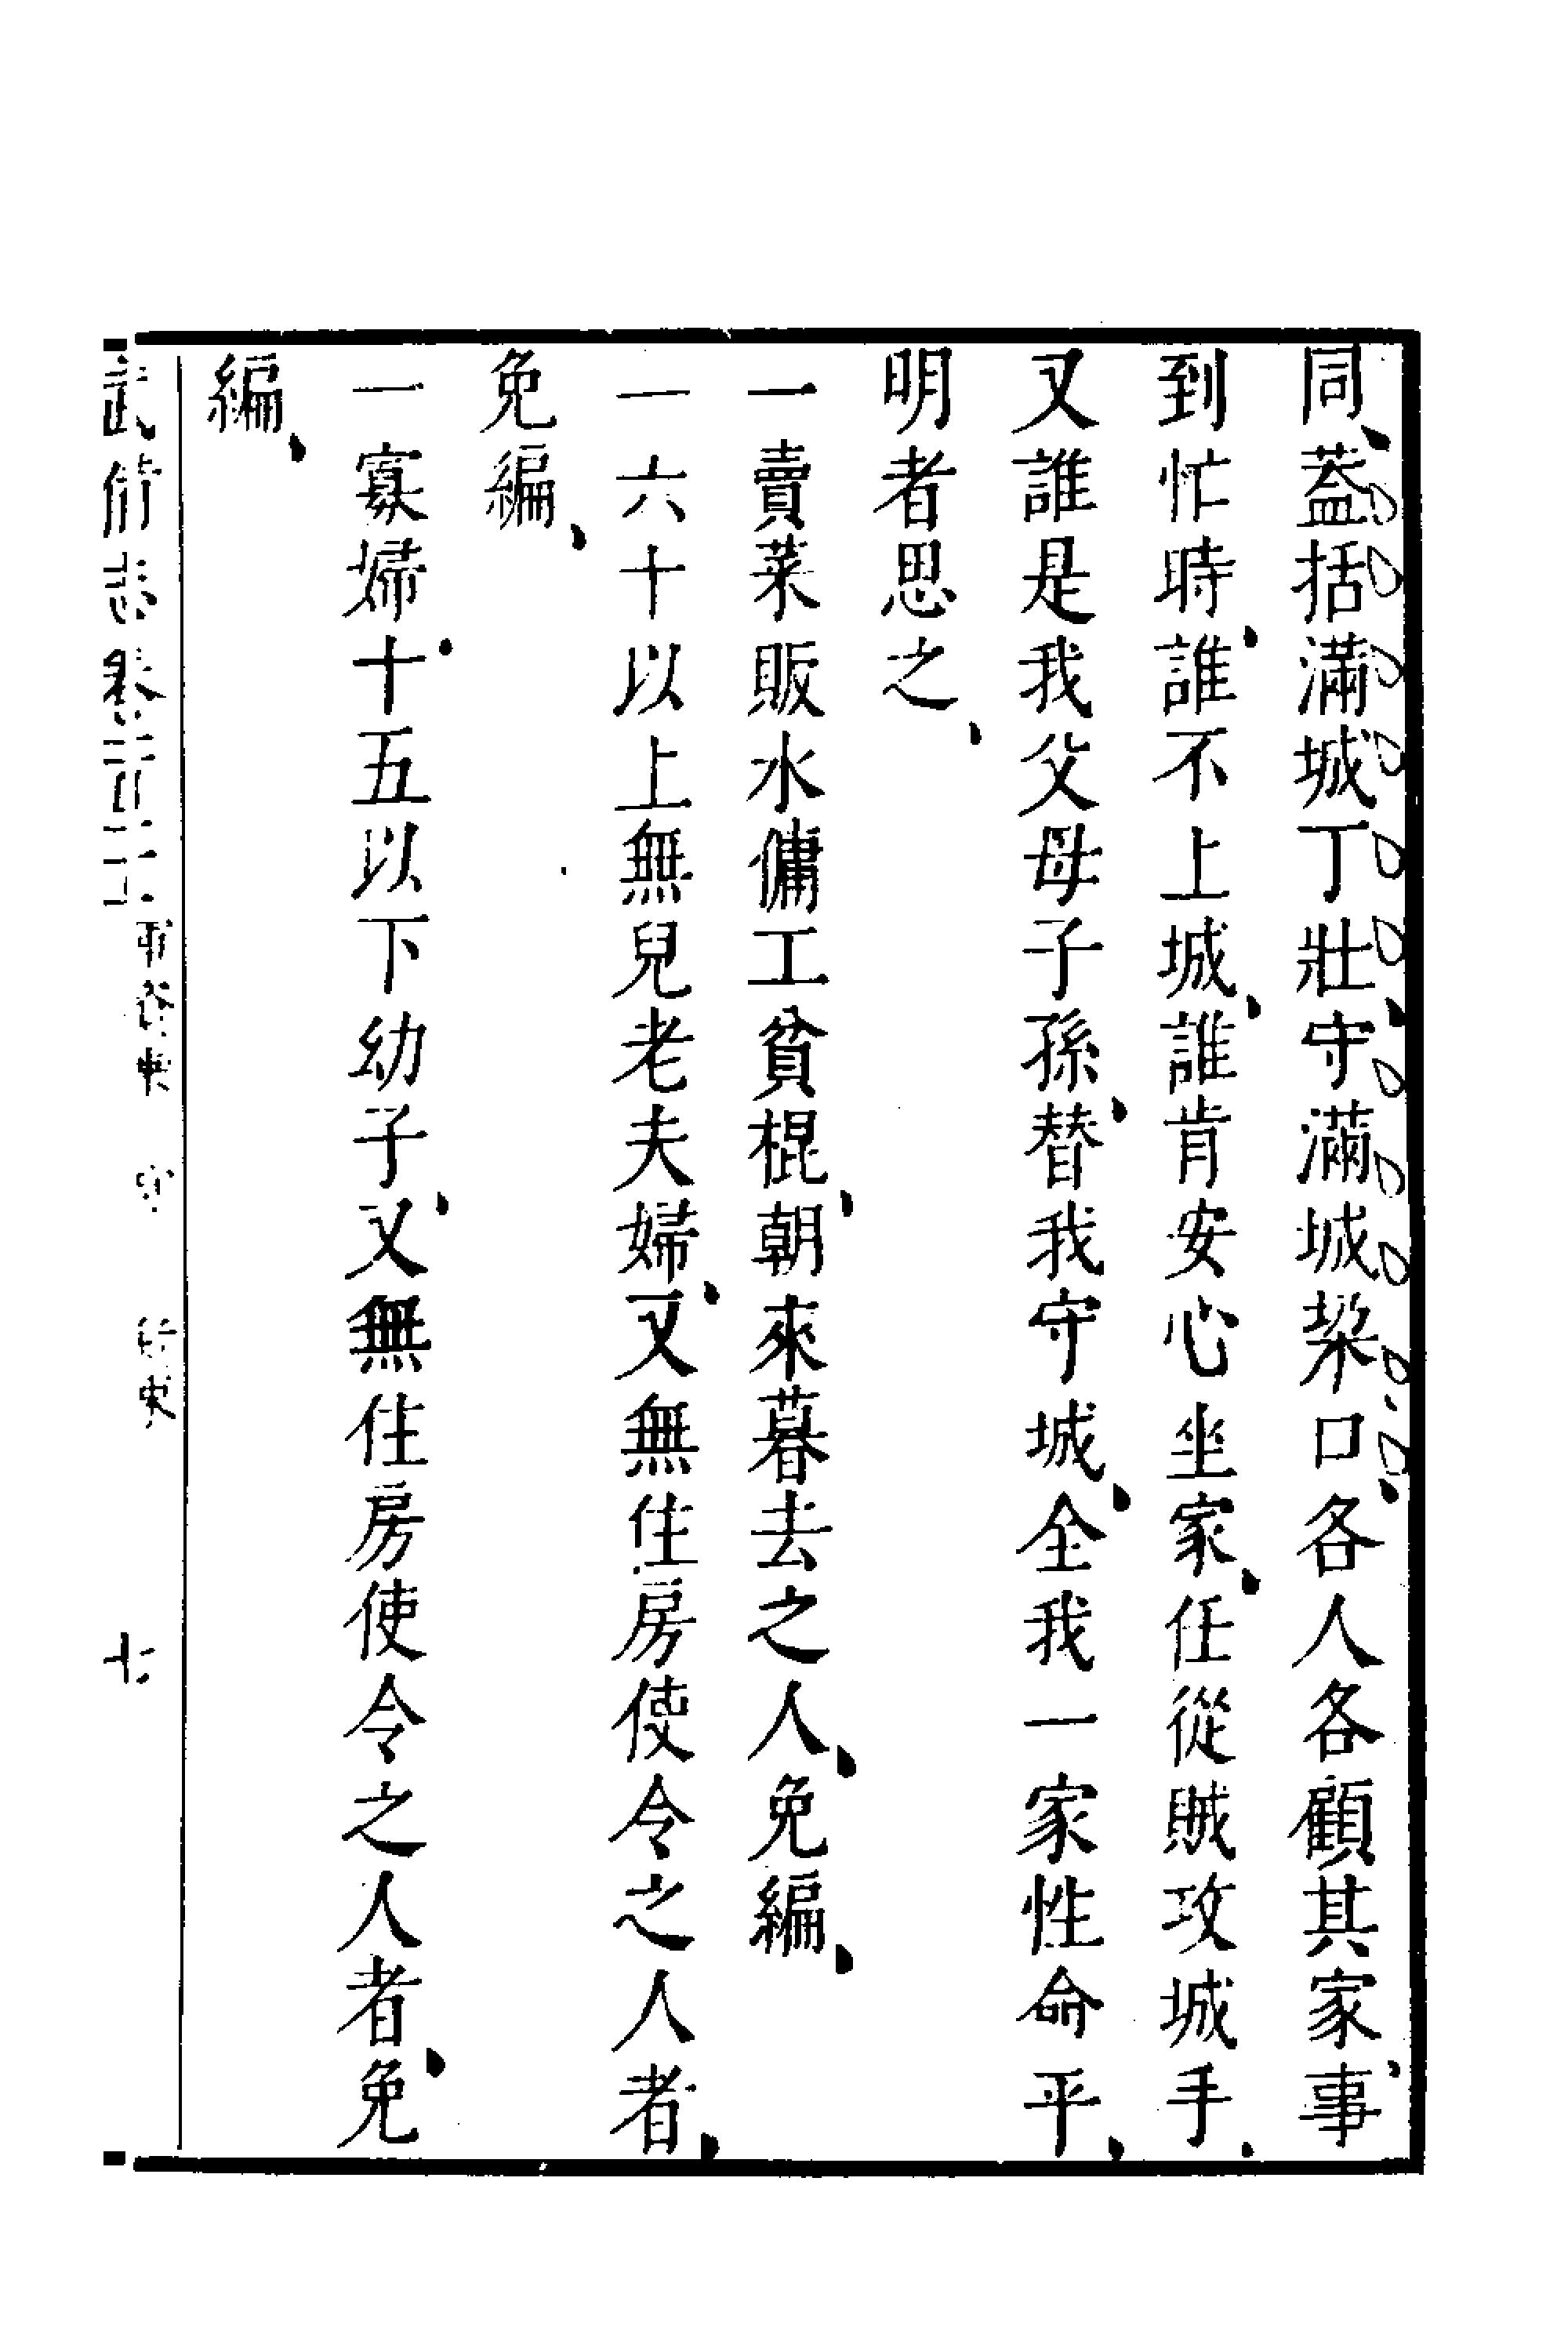 同、蓋括滿城丁壯、守滿城垜口、各人各顧其家事、
到忙時、誰不上城、誰肯安心坐家、任從賊攻城手、
又誰是我父母子孫、替我守城、全我一家性命乎、
明者思之、
一賣菜販水傭工貧棍、朝來暮去之人、免編、
一六十以上無兒老夫婦、又無住房使令之人者、
免編、
一寡婦、十五以下幼子、又無住房使令之人者、免
編、
武備志卷 守 七